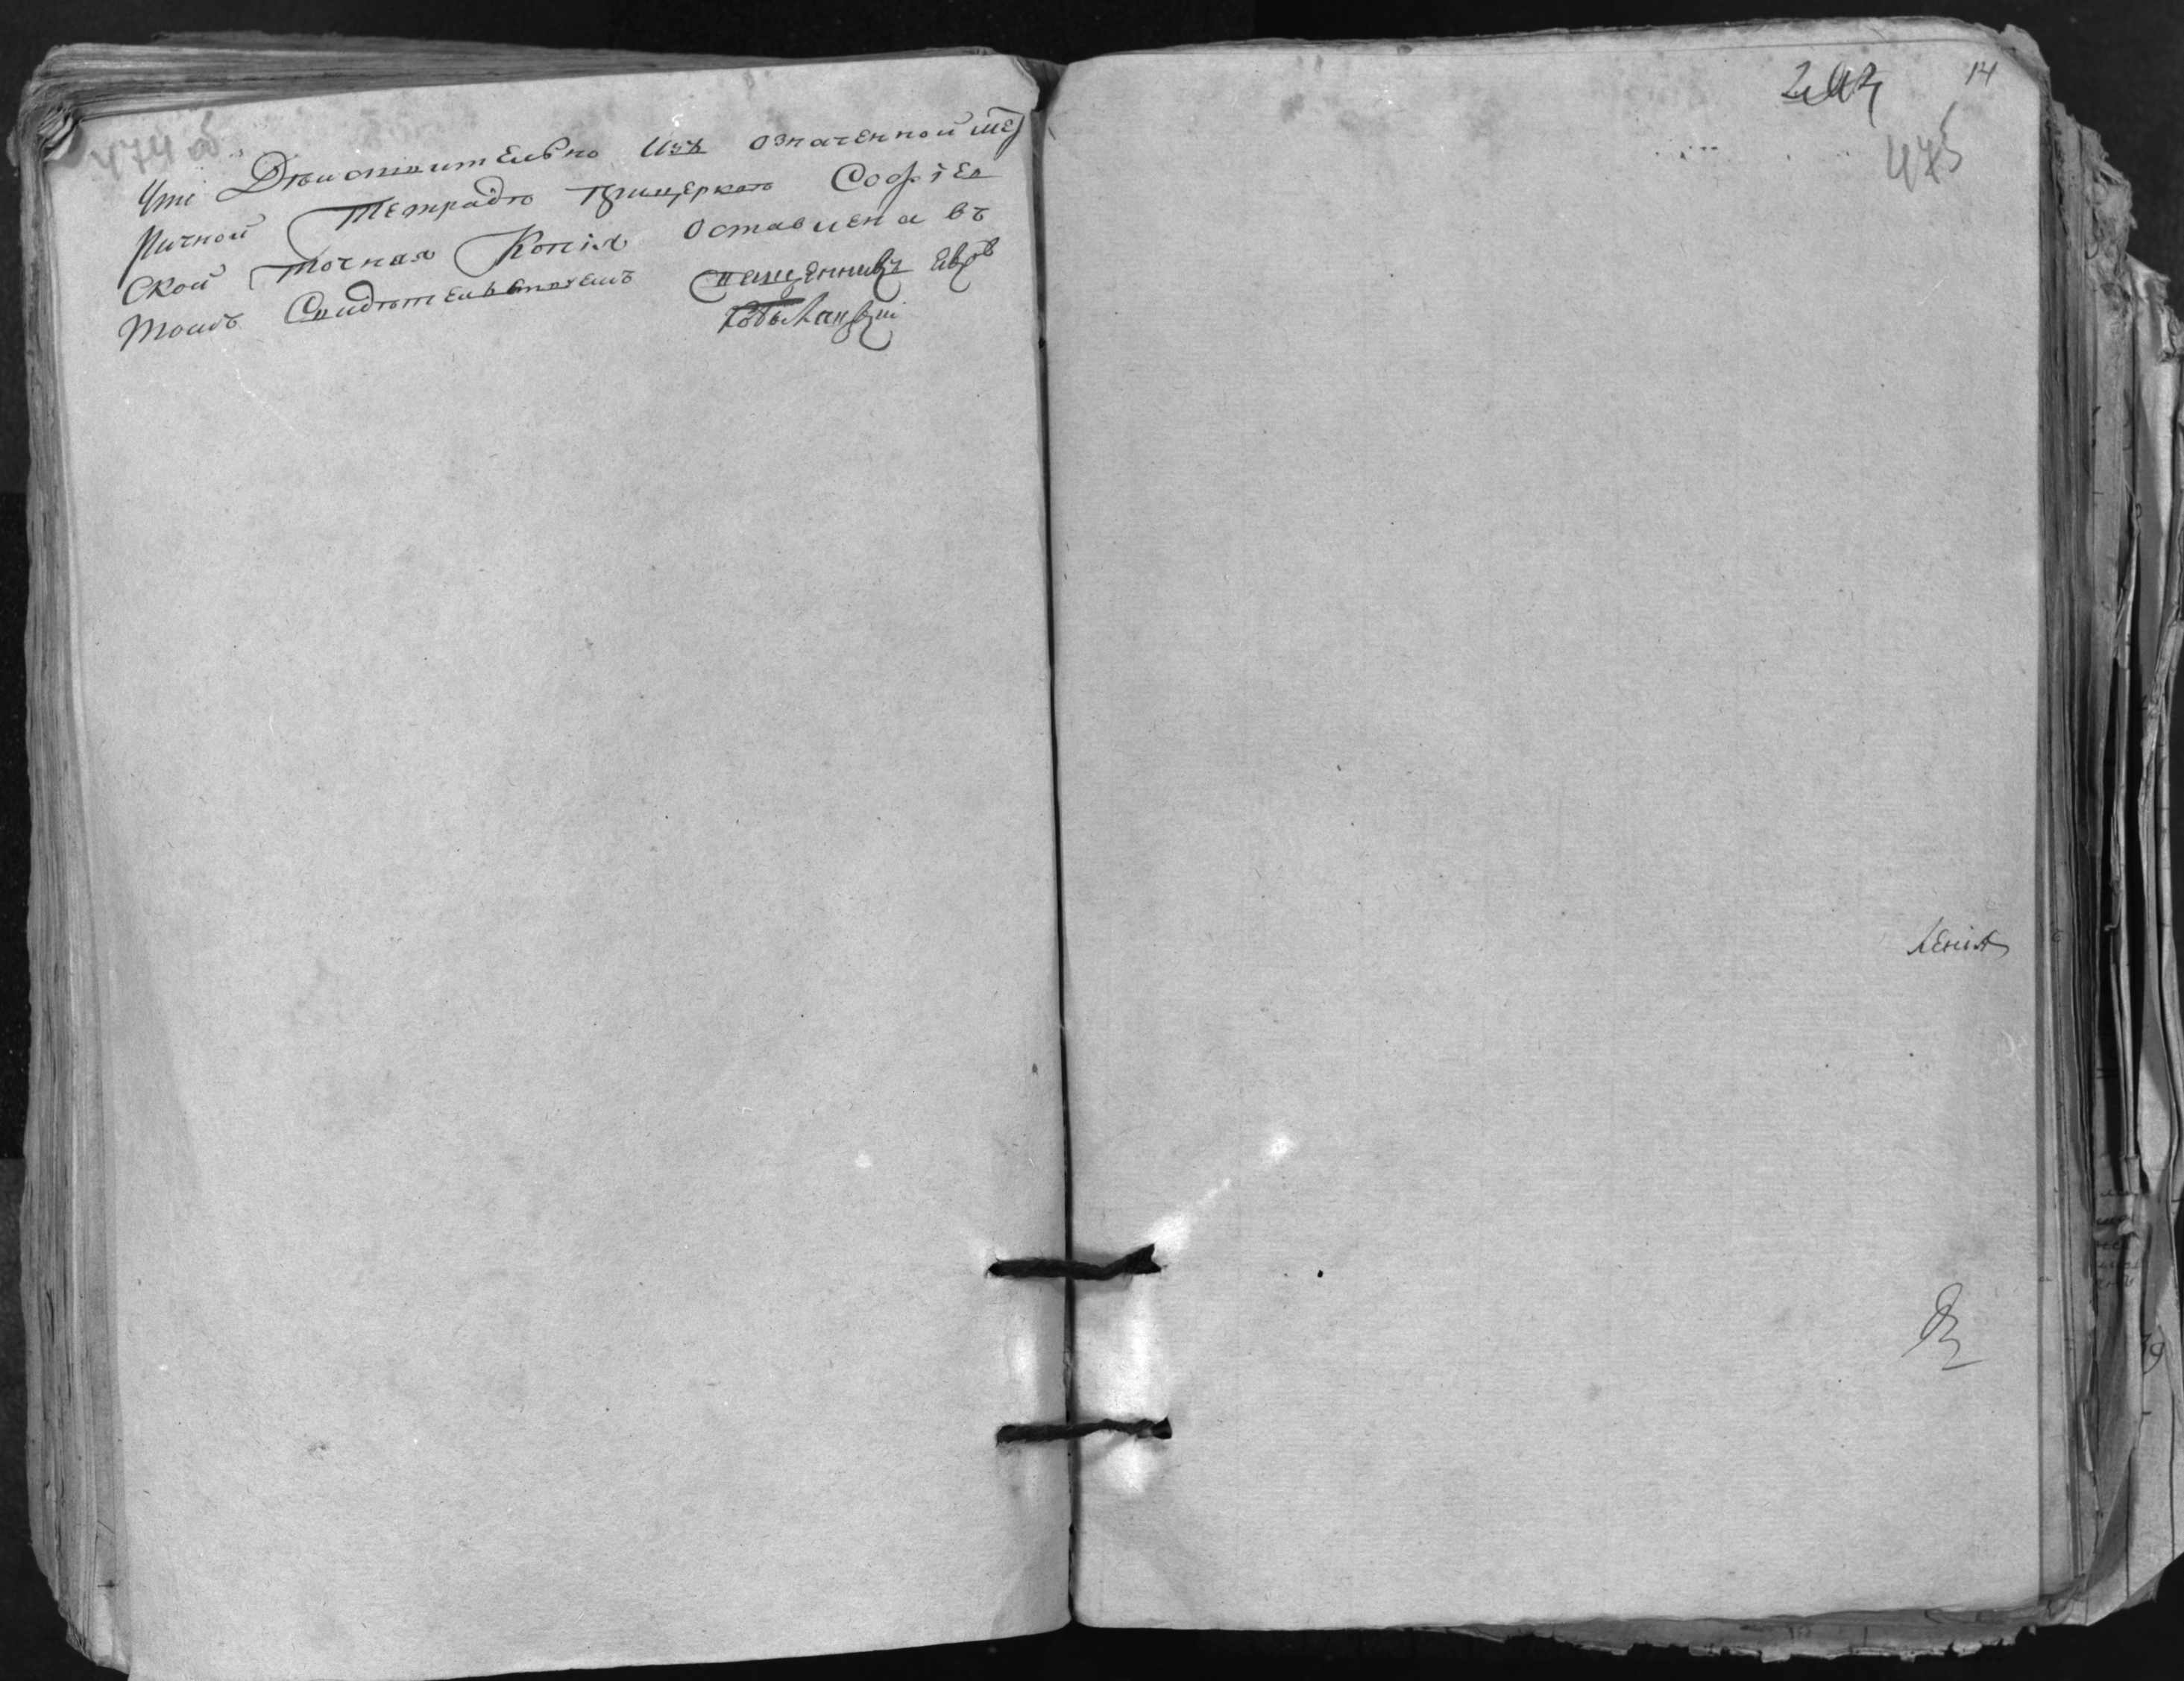 474 об.
Что Дѣиствително изъ означенной ме
ричной тетради прицеркви Софіев
ской точная копія оставлена въ
томъ свидѣтельствуемъ священникъ
Кобылянскій
14
475
ленія